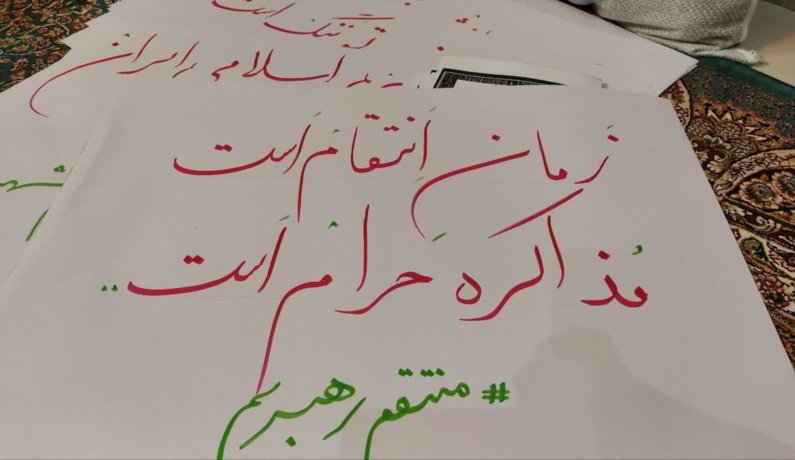 است
ننگ است
اسلامی ایران
زمان انتقام است
مذاکره حرام است..
#منتقم رهبرم